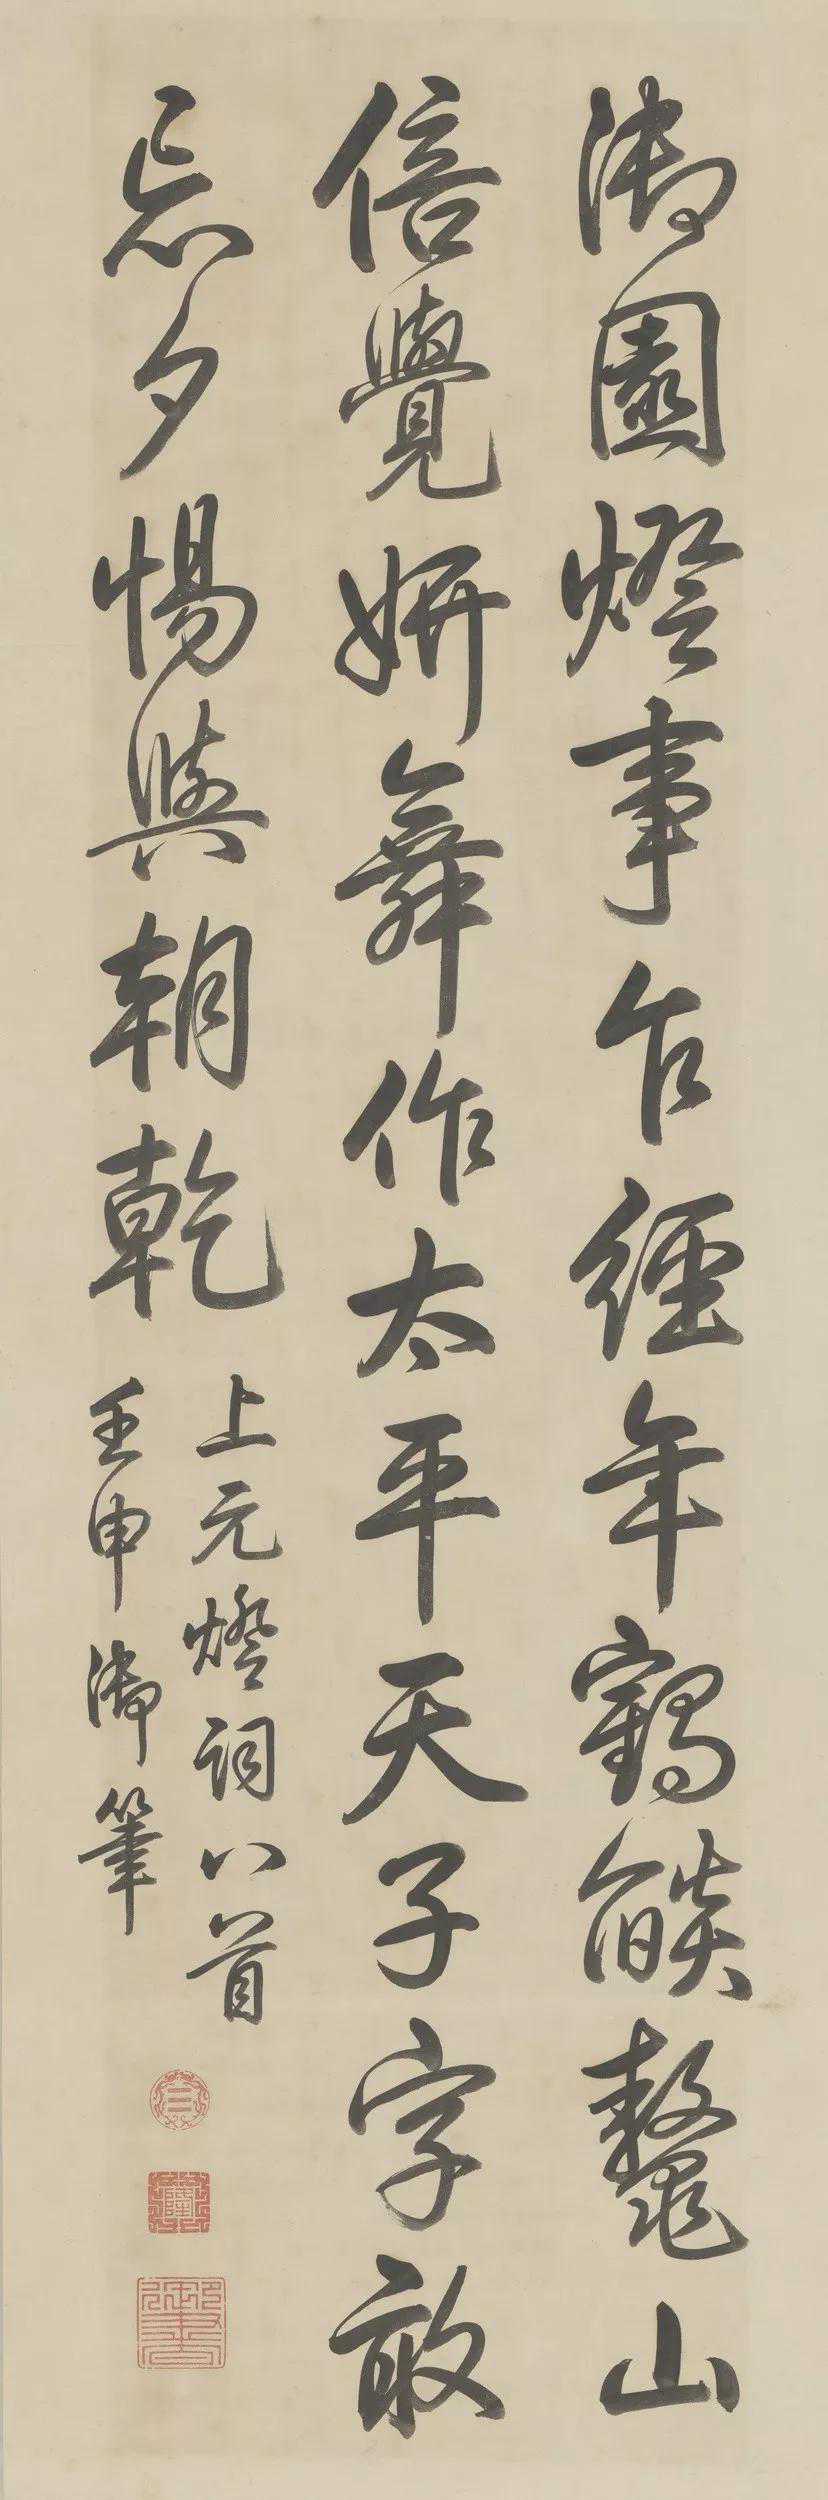 御園燈事乍經年鶴燄鼇山
倍覺妍舞作太平天子字敢
忘夕惕與朝乾
上元燈詞八首
壬申御筆
隆